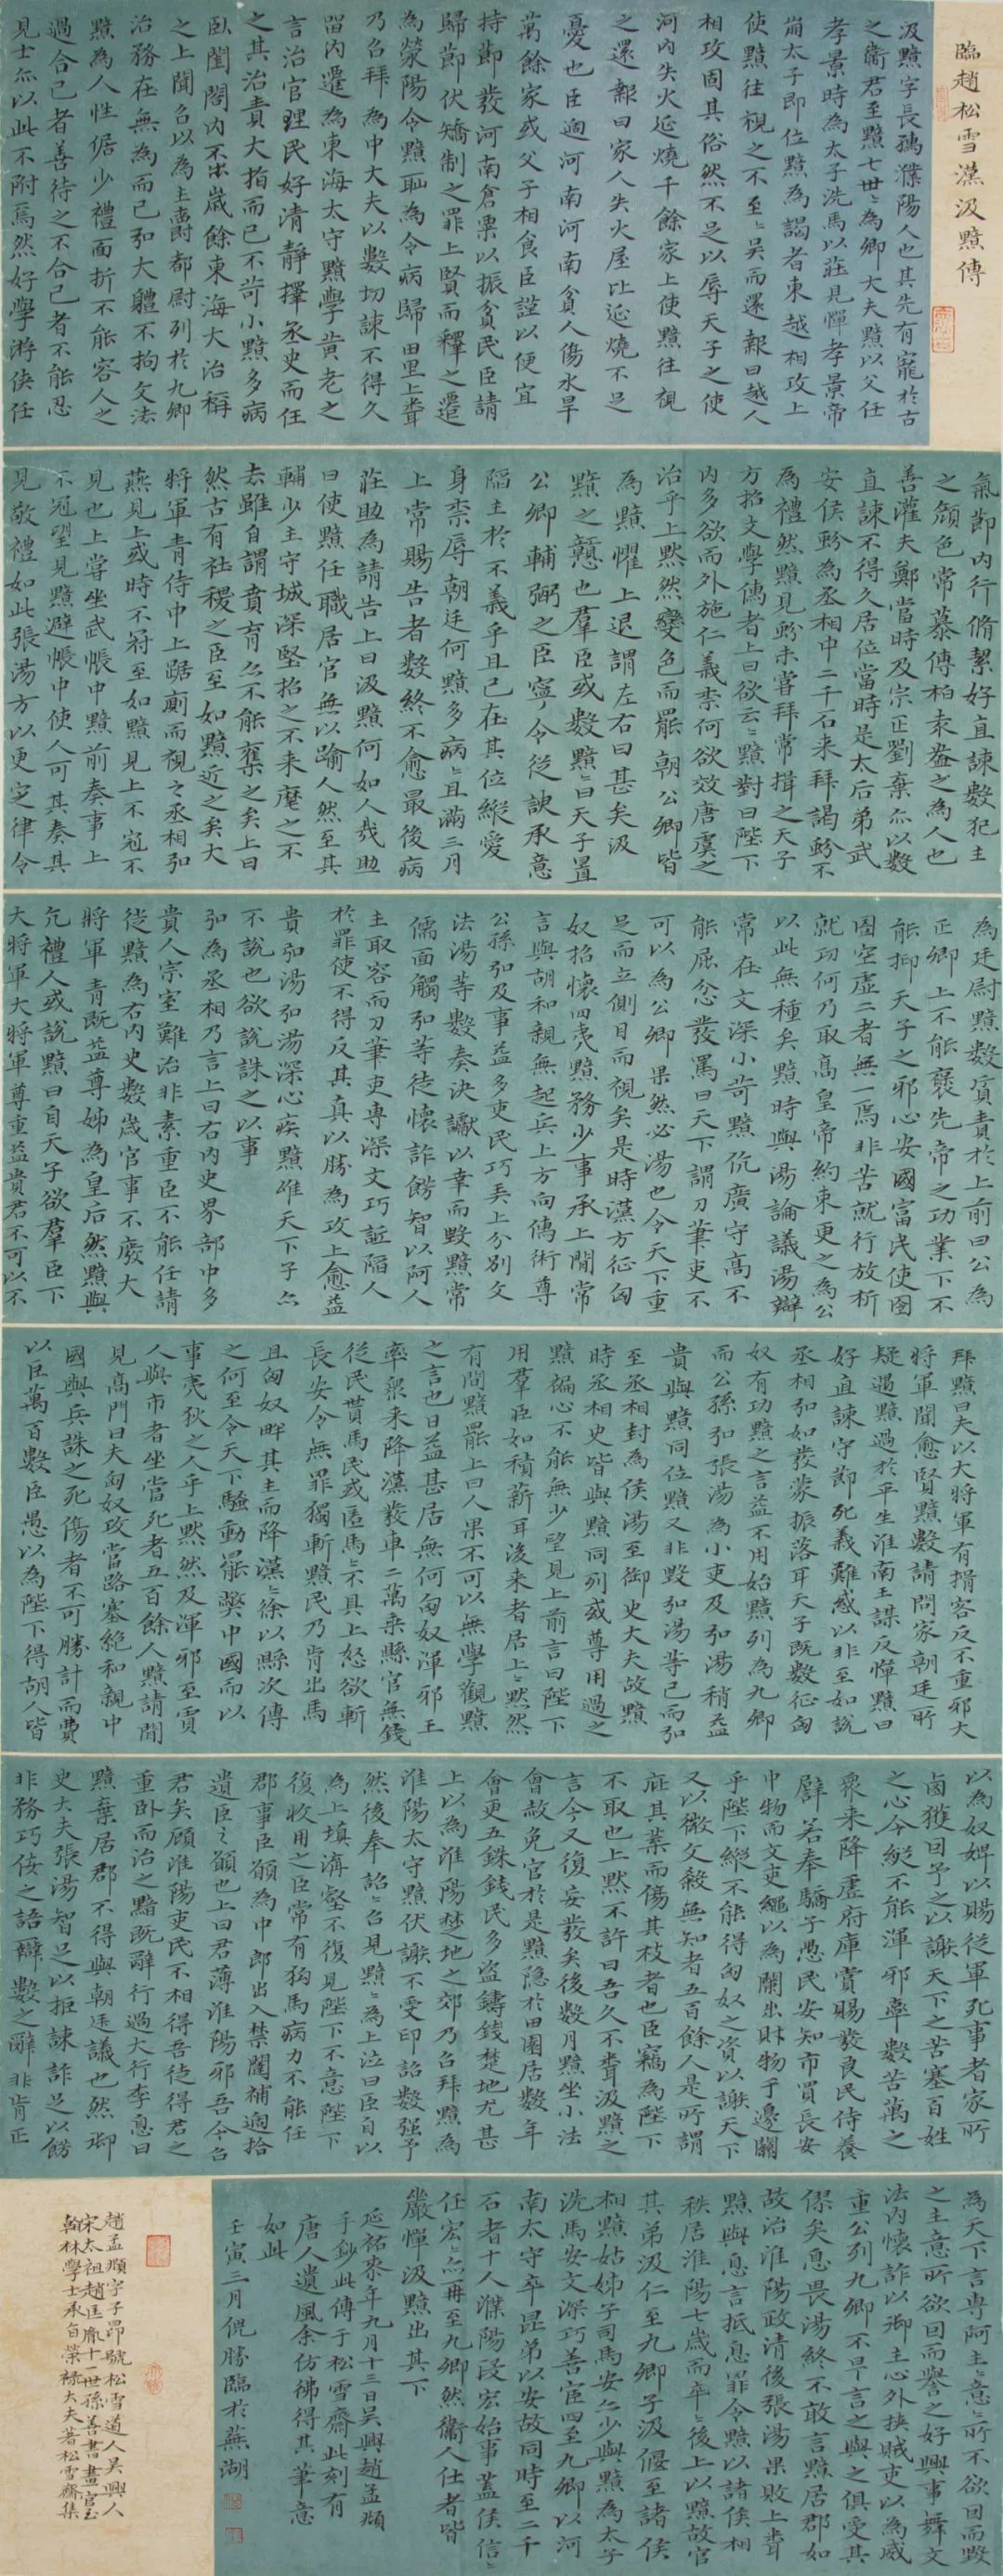 臨趙松雪漢汲黯傳
汲黯字長孺濮陽人也其先有寵於古
之衛君至黯七世〻為卿大夫黯以父任
孝景時為太子洗馬以莊見憚孝景帝
崩太子即位黯為謁者東越相攻上
使黯往視之不至〻吳而還報曰越人
相攻固其俗然不足以辱天子之使
河內失火延燒千餘家上使黯往視
之還報曰家人失火屋比延燒不足
憂也臣過河南河南貧人傷水旱
萬餘家或父子相食臣謹以便宜
持節發河南倉粟以振貧民臣請
歸節伏矯制之罪上賢而釋之遷
為滎陽令黯恥為令病歸田里上聞
乃召拜為中大夫以數切諫不得久
留內遷為東海太守黯學黃老之
言治官理民好清靜擇丞史而任
之其治責大指而已不苛小黯多病
臥閨閤內不出歲餘東海大治稱
之上聞召以為主爵都尉列於九卿
治務在無為而已弘大體不拘文法
黯為人性倨少禮面折不能容人之
過合己者善待之不合己者不能忍
見士亦以此不附焉然好學游俠任
氣節內行脩絜好直諫數犯主
之顏色常慕傅柏袁盎之為人也
善灌夫鄭當時及宗正劉棄亦以數
直諫不得久居位當時是太后弟武
安侯蚡為丞相中二千石來拜謁蚡不
為禮然黯見蚡未嘗拜常揖之天子
方招文學儒者上曰欲云〻黯對曰陛下
內多欲而外施仁義柰何欲效唐虞之
治乎上默然變色而罷朝公卿皆
為黯懼上退謂左右曰甚矣汲
黯之戇也羣臣或數黯〻曰天子置
公卿輔弼之臣寧令從諛承意
陷主於不義乎且已在其位縱愛
身柰辱朝廷何黯多病〻且滿三月
上常賜告者數終不愈最後病
莊助為請告上曰汲黯何如人哉助
曰使黯任職居官無以踰人然至其
輔少主守城深堅招之不來麾之不
去雖自謂賁育亦不能奪之矣上曰
然古有社稷之臣至如黯近之矣大
將軍青侍中上踞廁而視之丞相弘
燕見上或時不冠至如黯見上不冠不
見也上嘗坐武帳中黯前奏事上
不冠望見黯避帳中使人可其奏其
見敬禮如此張湯方以更定律令
為廷尉黯數質責於上前曰公為
正卿上不能襃先帝之功業下不
能抑天子之邪心安國富民使囹
圄空虛二者無一焉非苦就行放析
就功何乃取高皇帝約束更之為公
以此無種矣黯時與湯論議湯辯
常在文深小苛黯伉厲守高不
能屈忿發罵曰天下謂刀筆吏不
可以為公卿果然必湯也令天下重
足而立側目而視矣是時漢方征匈
奴招懷四夷黯務少事承上閒常
言與胡和親無起兵上方向儒術尊
公孫弘及事益多吏民巧弄上分別文
法湯等數奏決讞以幸而黯常
儒面觸弘等徒懷詐飾智以阿人
主取容而刀筆吏專深文巧詆陷人
於罪使不得反其真以勝為攻上愈益
貴弘湯弘湯深心疾黯雖天下子亦
不說也欲說誅之以事
弘為丞相乃言上曰右內史界部中多
貴人宗室難治非素重臣不能任請
徙黯為右內史數歲官事不廢大
將軍青既益尊姊為皇后然黯與
亢禮人或說黯曰自天子欲羣臣下
大將軍大將軍尊重益貴君不可以不
拜黯曰夫以大將軍有揖客反不重邪大
將軍聞愈賢黯數請問家朝廷所
疑遇黯過於平生淮南王謀反憚黯曰
好直諫守節死義難惑以非至如說
丞相弘如發蒙振落耳天子既數征匈
奴有功黯之言益不用始黯列為九卿
而公孫弘張湯為小吏及弘湯稍益
貴與黯同位黯又非毀弘湯等已而弘
至丞相封為侯湯至御史大夫故黯
時丞相史皆與黯同列或尊用過之
黯褊心不能無少望見上前言曰陛下
用羣臣如積薪耳後來者居上〻默然
有間黯罷上曰人果不可以無學觀黯
之言也日益甚居無何匈奴渾邪王
率衆來降漢發車二萬乘縣官無錢
從民貰馬民或匿馬〻不具上怒欲斬
長安令無罪獨斬黯民乃肯出馬
且匈奴畔其主而降漢〻徐以縣次傳
之何至令天下騷動罷獘中國而以
事夷狄之人乎上默然及渾邪至賈
人與市者坐當死者五百餘人黯請閒
見高門曰夫匈奴攻當路塞絕和親中
國興兵誅之死傷者不可勝計而費
以臣萬百數臣愚以為陛下得胡人皆
以為奴婢以賜從軍死事者家所
鹵獲因予之以謝天下之苦塞百姓
之心今縱不能渾邪率數苦萬之
衆來降虛府庫賞賜發良民侍養
譬若奉驕子愚民安知市買長安
中物而文吏繩以為闌出財物于邊關
乎陛下縱不能得匈奴之資以謝天下
又以微文殺無知者五百餘人是所謂
庇其葉而傷其枝者也臣竊為陛下
不取也上默不許曰吾久不聞汲黯之
言今又復妄發矣後數月黯坐小法
會赦免官於是黯隱於田園居數年
會更五銖錢民多盜鑄錢楚地尤甚
上以為淮陽楚地之郊乃召拜黯為
淮陽太守黯伏謝不受印詔數強予
然後奉詔〻召見黯〻為上泣曰臣自以
為上填溝壑不復見陛下不意陛下
復收用之臣常有狗馬病力不能任
郡事臣願為中郎出入禁闥補過拾
遺臣之願也上曰君薄淮陽邪吾今召
君矣顧淮陽吏民不相得吾徒得君之
重臥而治之黯既辭行過大行李息曰
黯棄居郡不得與朝廷議也然御
史大夫張湯智足以拒諫詐足以飾
非務巧佞之語辯數之辭非肯正
為天下言專阿主〻意〻所不欲因而毀
之主意所欲因而譽之好興事舞文
法內懷詐以御主心外挾賊吏以為威
重公列九卿不早言之與之俱受其
僇矣息畏湯終不敢言黯居郡如
故治淮陽政清後張湯果敗上聞
黯與息言抵息罪令黯以諸侯相
秩居淮陽七歲而卒〻後上以黯故官
其弟汲仁至九卿子汲偃至諸侯
相黯姑姊子司馬安亦少與黯為太子
洗馬安文深巧善宦四至九卿以河
南太守卒昆弟以安故同時至二千
石者十人濮陽段宏始事蓋侯信〻
任宏〻亦再至九卿然衛人仕者皆
嚴憚汲黯出其下
延祐柒年九月十三日吳興趙孟頫
手鈔此傳于松雪齋此刻有
唐人遺風余仿彿得其筆意
如此
壬寅三月倪勝臨於蕪湖
趙孟頫字子昂號松雪道人吳興人
宋太祖趙匡胤十一世孫善書畫官至
翰林學士承旨榮祿大夫著松雪齋集